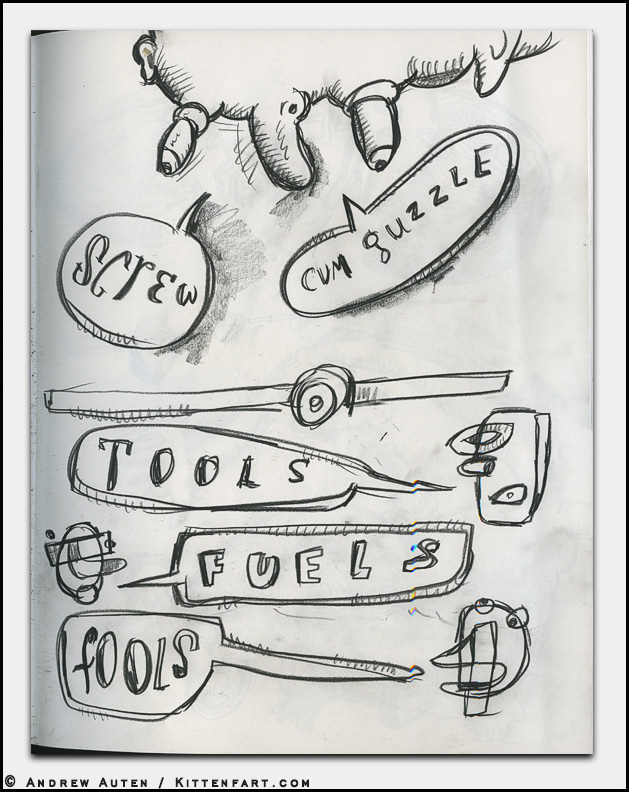 SCrEW
CUM guZZLE
TOOLS
FUELS
fOOLS
© Andrew Auten / Kittenfart.com